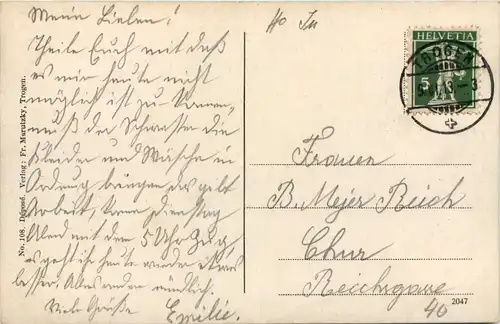 Meine Lieben!
Theile Euch mit daß
es mir heute nicht
möglich ist zu kommen,
muß der Schwester die
Kleider und Wäsche in
Ordnung bringen, es gibt
Arbeit, komme Dienstag
Abend mit dem 5 Uhr Zug,
es geht ihr heute wieder etwas
besser. Alles andere mündlich.
Viele Grüße
Emilie.
No. 108. Déposé. Verlag: Fr. Marutzky, Trogen.
HELVETIA
5
TROGEN
Frauen
B. Mejer Reich
Chur
Reichsgasse
40
2047